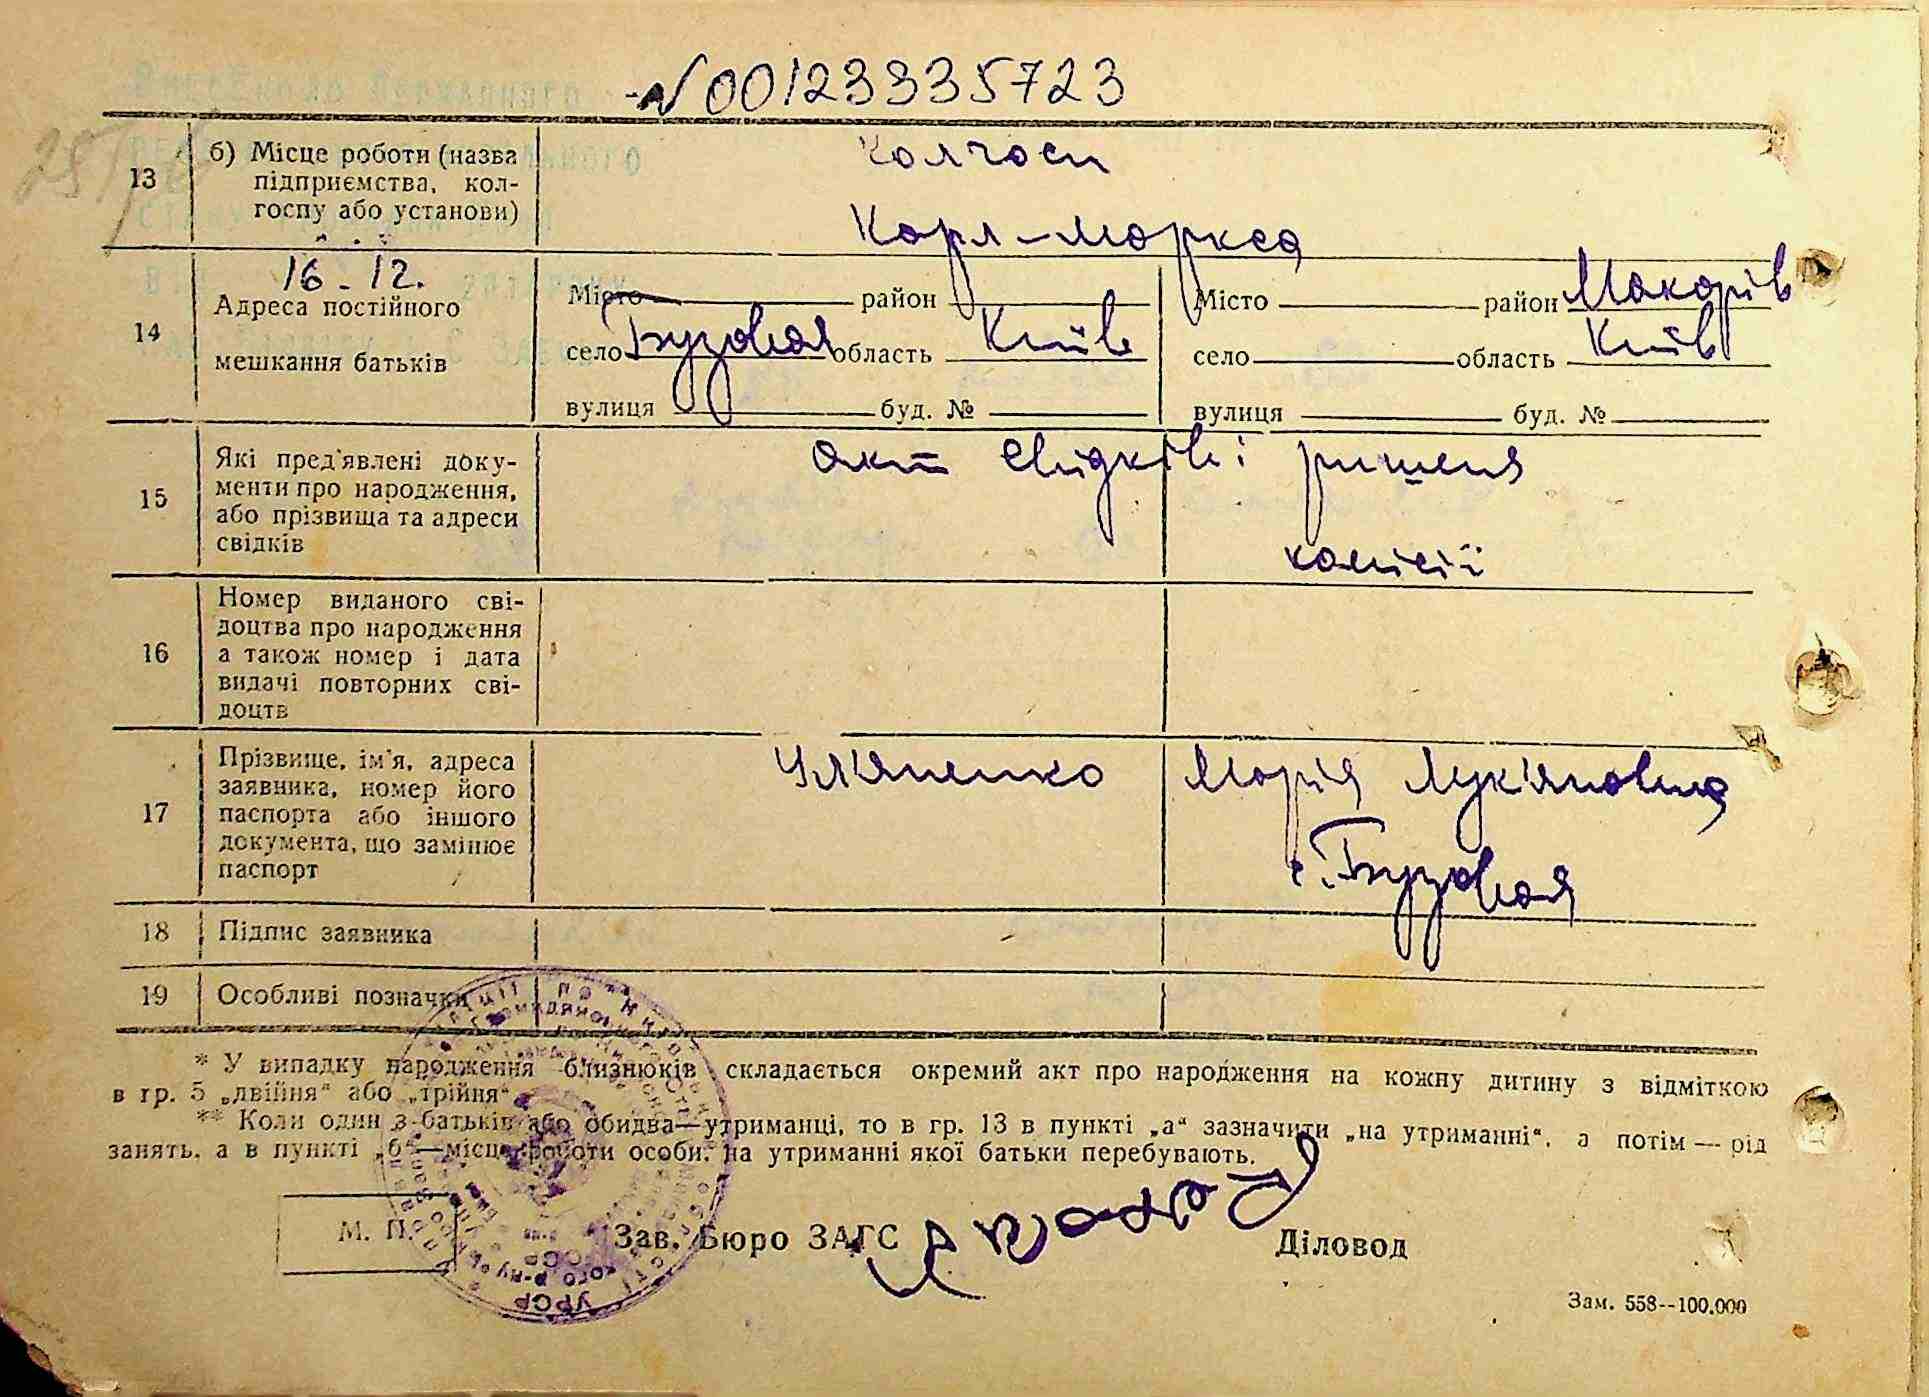 №00123335723
13 б) Місце роботи (назва
підприємства, кол-
госпу або установи)
Колгосп
Карл-Маркса
16-12.
14 Адреса постійного
мешкання батьків
Місто район
село Бузовая область Київ
вулиця буд. №
Місто район Макарів
село область Київ
вулиця буд. №
15 Які пред'явлені доку-
менти про народження,
або прізвища та адреси
свідків
Акт свидків і ришення
комісії
16 Номер виданого сві-
доцтва про народження
а також номер і дата
видачі повторних сві-
доцтв
17 Прізвище, ім'я, адреса
заявника, номер його
паспорта або іншого
документа, що замінює
паспорт
Ул'яненко Марія Лук'яновна
с. Бузовая
18 Підпис заявника
19 Особливі позначки
* У випадку народження близнюків складається окремий акт про народження на кожну дитину з відміткою
в гр. 5 „двійня“ або „трійня“.
** Коли один з батьків або обидва—утриманці, то в гр. 13 в пункті „а“ зазначити „на утриманні“, а потім — рід
занять, а в пункті „б“—місце роботи особи, на утриманні якої батьки перебувають.
М. П. Зав. Бюро ЗАГС Діловод
УРСР
Зам. 558--100.000